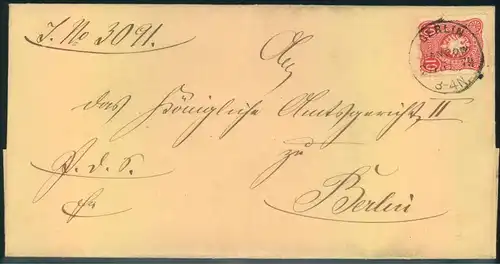 J. No 3091.
An
das Königliche Amtsgericht II
zu
P. d. S.
Berlin
BERLIN
3-4N.
10